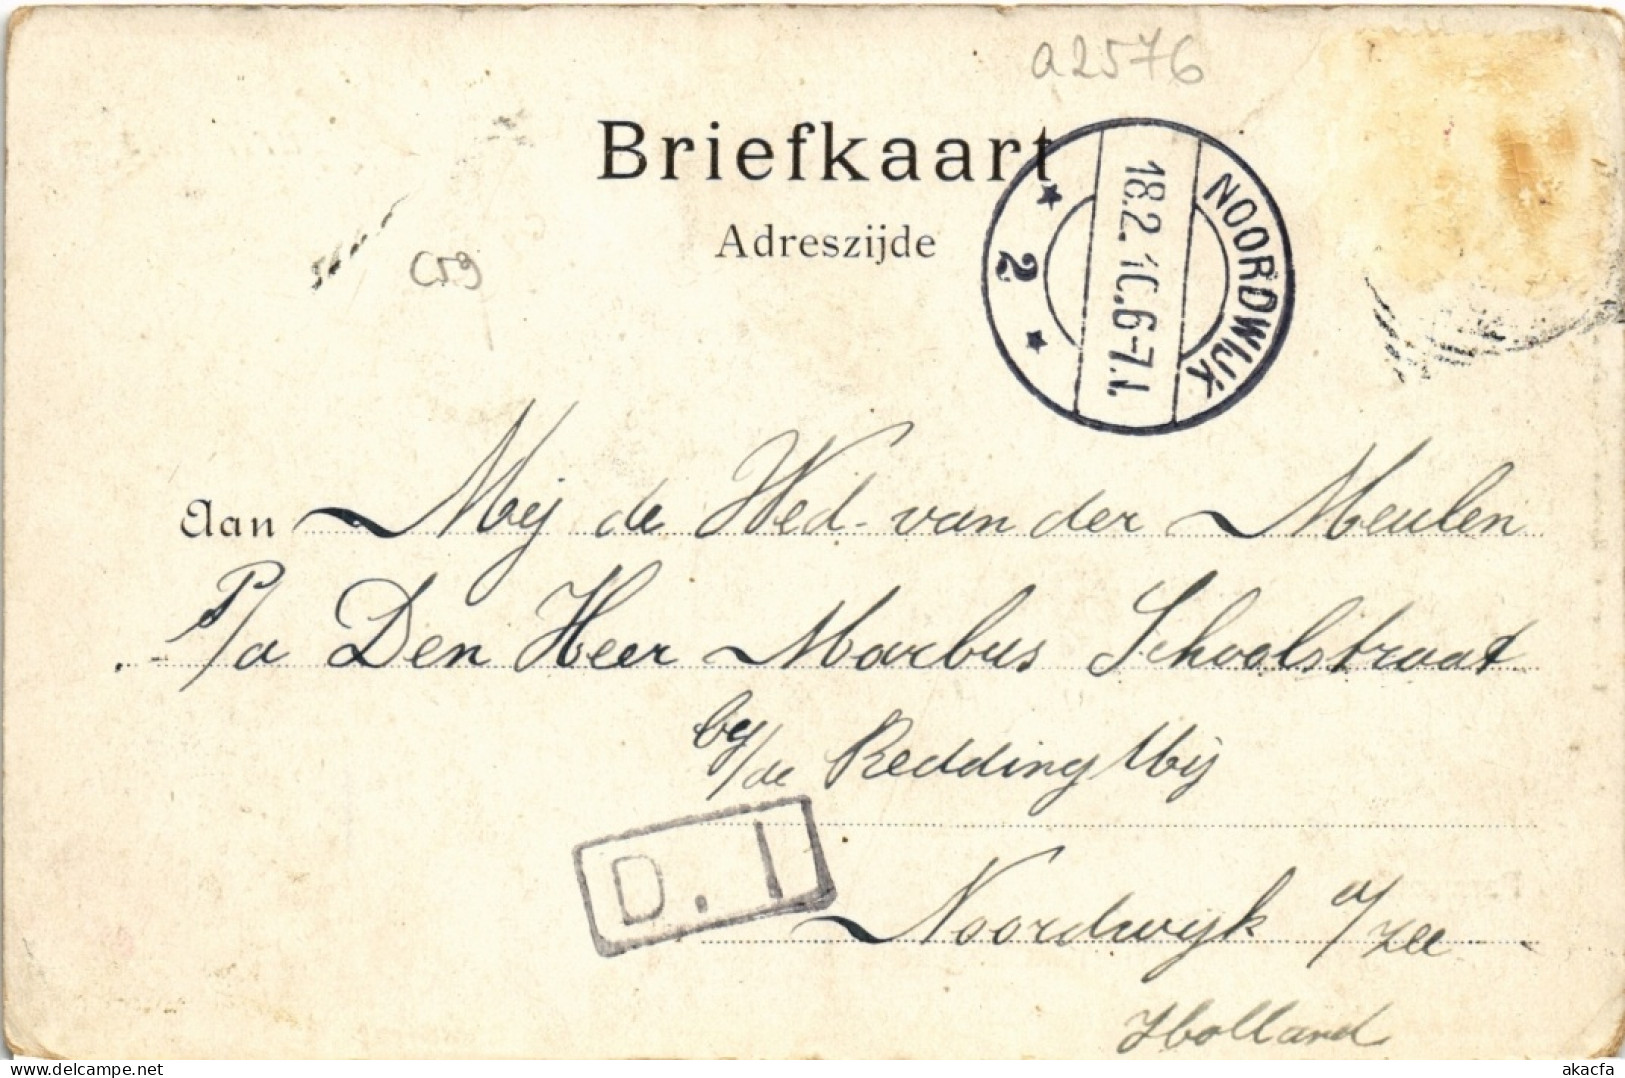 a2576
Briefkaart
Adreszijde
NOORDWIJK
18.2.10.6-7.N.
2
C59
Aan Mej de Wed. van der Meulen
P/a Den Heer Marbus Schoolstraat
by/de Redding Mij
D. I
Noordwijk a/zee
Holland
akacfa